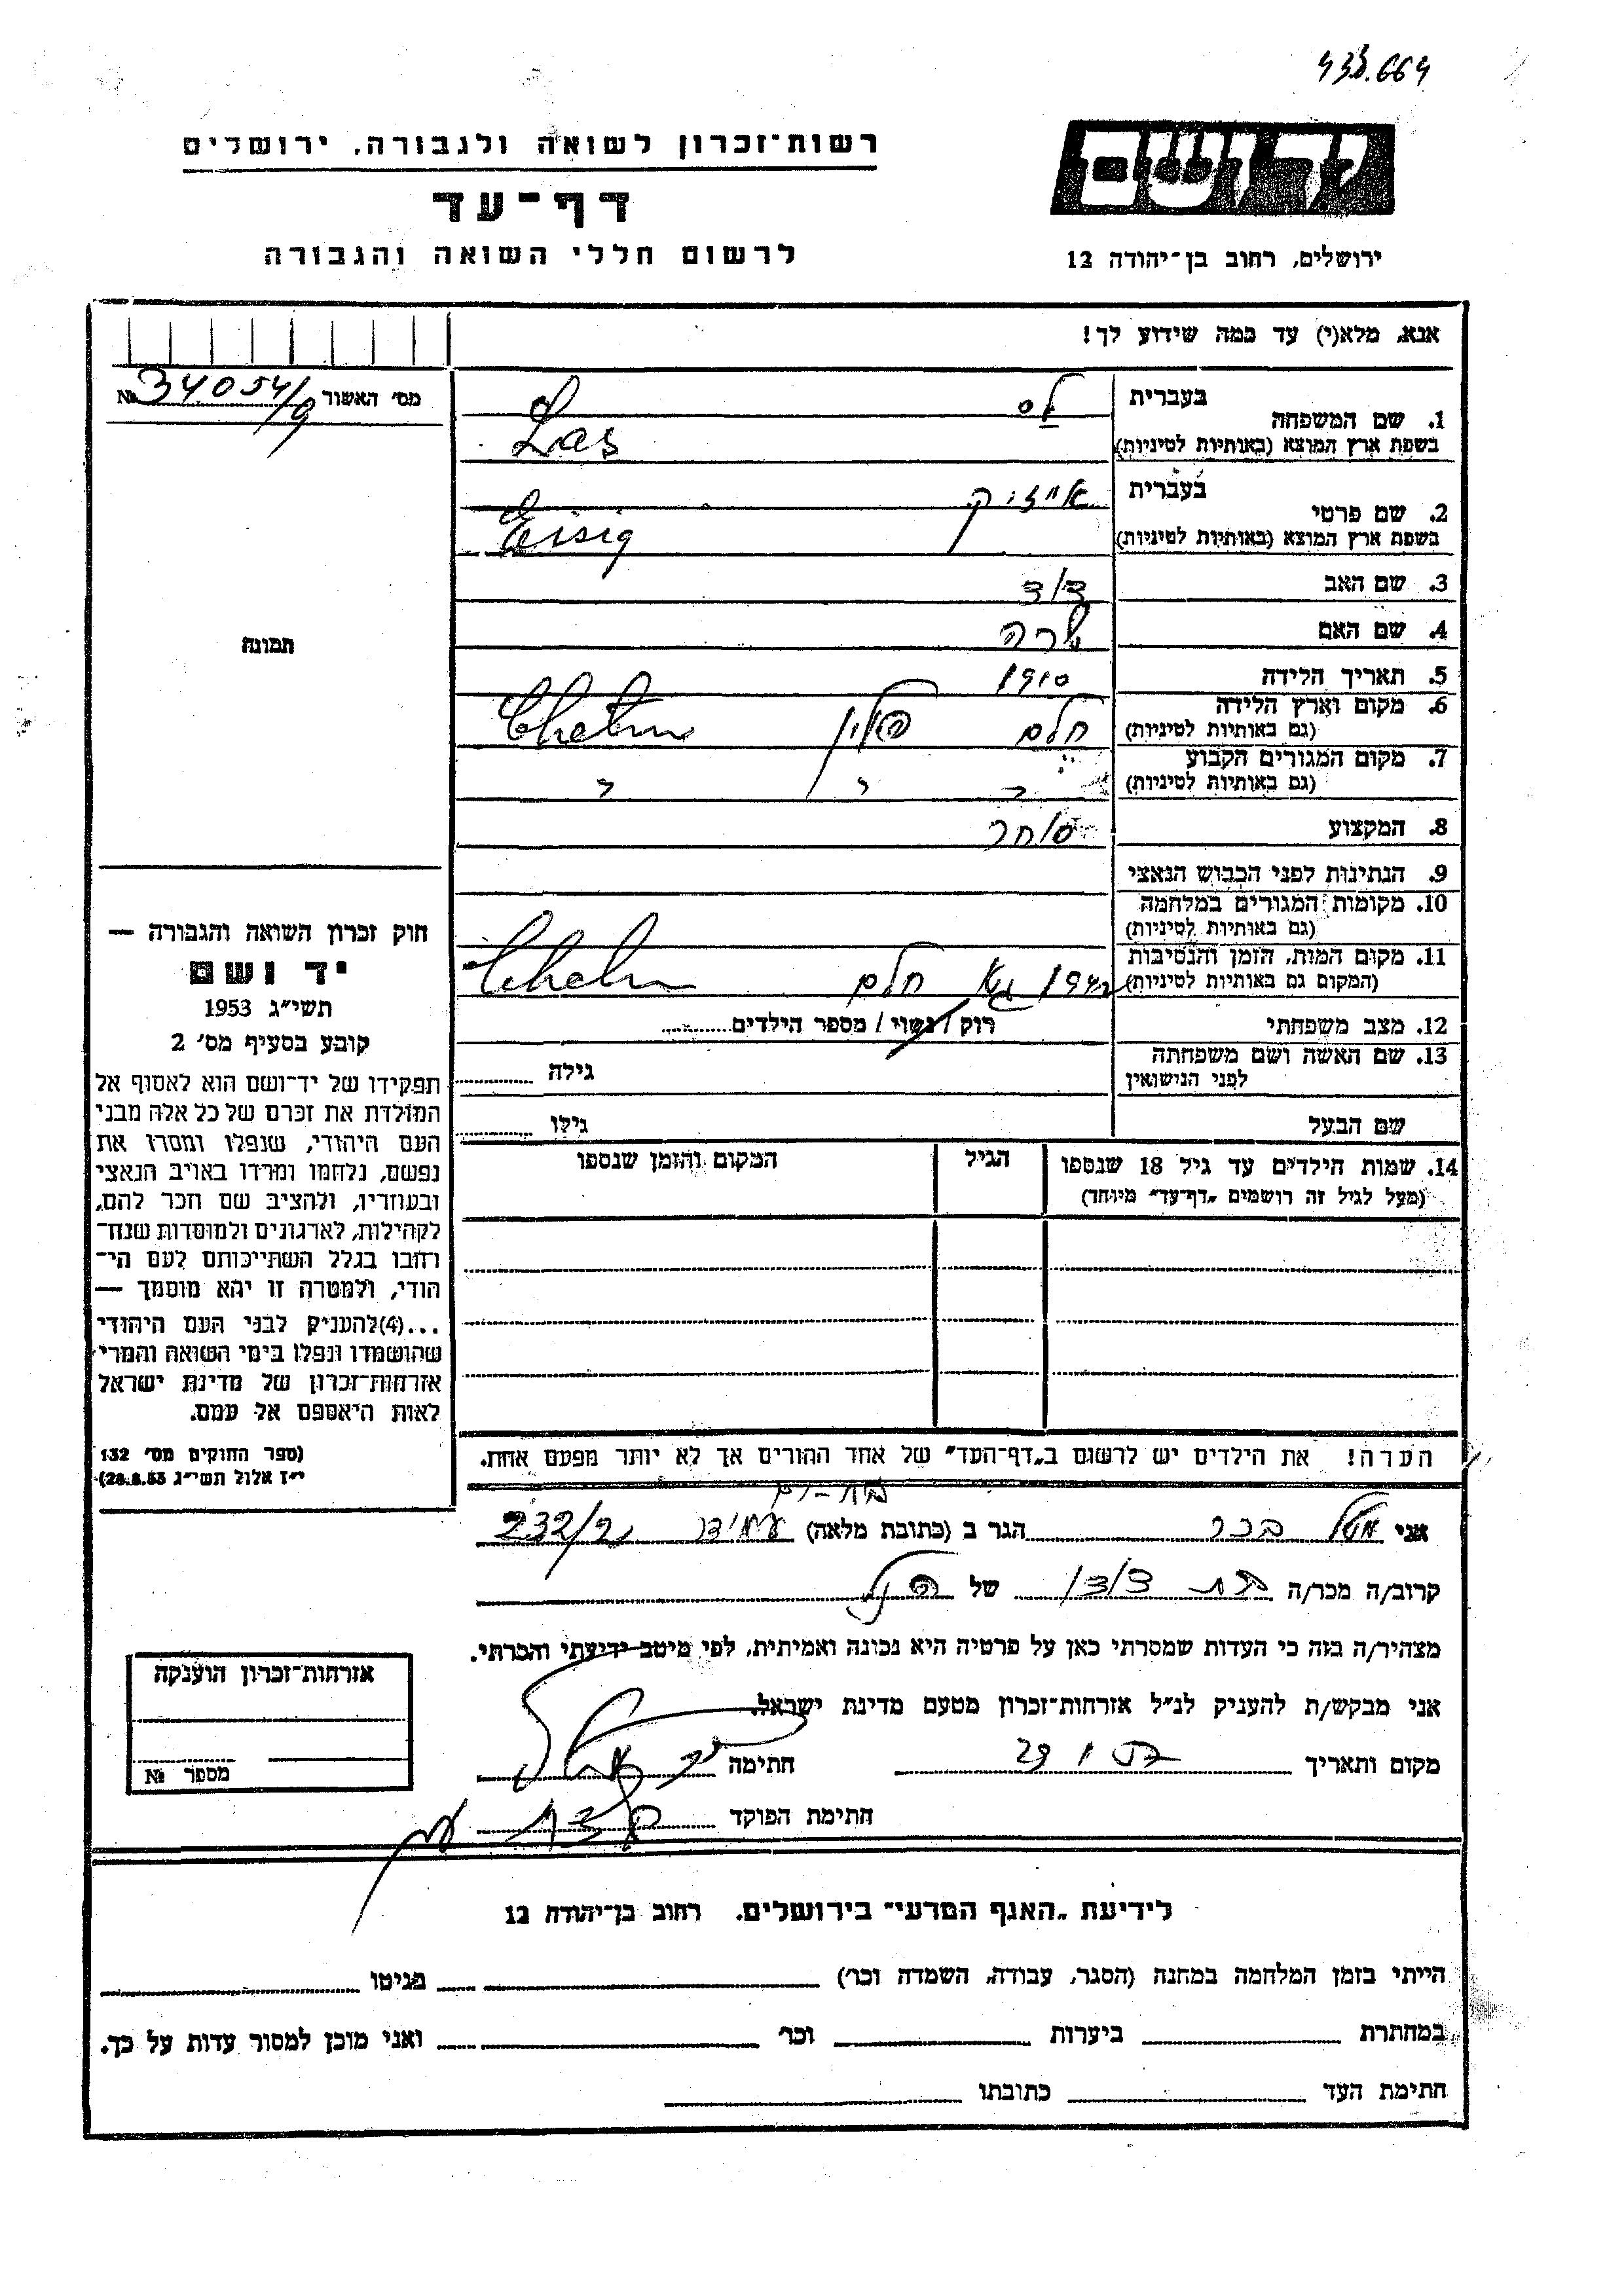 רשות־זכרון לשואה ולגבורה, ירושלים
דף־עד
לרשום חללי השואה והגבורה
ירושלים, רחוב בן־יהודה 12
אנא, מלא(י) עד כמה שידוע לך!
מס׳ האשור № 34054/9
1. שם המשפחה
בעברית לס
בשפת ארץ המוצא (באותיות לטיניות) Las
2. שם פרטי
בעברית אייזיק
בשפת ארץ המוצא (באותיות לטיניות) Eisig
3. שם האב דוד
4. שם האם שרה
5. תאריך הלידה 1910
6. מקום וארץ הלידה (גם באותיות לטיניות) חלם פולין Chelm
7. מקום המגורים הקבוע (גם באותיות לטיניות) " " "
8. המקצוע סוחר
9. הנתינות לפני הכבוש הנאצי
10. מקומות המגורים במלחמה (גם באותיות לטיניות)
11. מקום המות, הזמן והנסיבות (המקום גם באותיות לטיניות) חלם Chelm
12. מצב משפחתי רוק / נשוי / מספר הילדים
13. שם האשה ושם משפחתה לפני הנישואין גילה
שם הבעל גילו
14. שמות הילדים עד גיל 18 שנספו (מעל לגיל זה רושמים „דף־עד” מיוחד)
הגיל
המקום והזמן שנספו
הערה! את הילדים יש לרשום ב„דף־העד” של אחד ההורים אך לא יותר מפעם אחת.
תמונה
חוק זכרון השואה והגבורה —
יד ושם
תשי״ג 1953
קובע בסעיף מס׳ 2
תפקידו של יד־ושם הוא לאסוף אל
המולדת את זכרם של כל אלה מבני
העם היהודי, שנפלו ומסרו את
נפשם, נלחמו ומרדו באויב הנאצי
ובעוזריו, ולהציב שם וזכר להם,
לקהילות, לארגונים ולמוסדות שנח־
רבו בגלל השתייכותם לעם הי־
הודי, ולמטרה זו יהא מוסמך —
...(4)להעניק לבני העם היהודי
שהושמדו ונפלו בימי השואה והמרי
אזרחות־זכרון של מדינת ישראל
לאות היאספם אל עמם.
(ספר החוקים מס׳ 132
י״ז אלול תשי״ג 28.8.53)
בת-ים
אני בכר הגר ב (כתובת מלאה) עמידר 232/
קרוב/ה מכר/ה בת דודו של הנ"ל
מצהיר/ה בזה כי העדות שמסרתי כאן על פרטיה היא נכונה ואמיתית, לפי מיטב ידיעתי והכרתי.
אני מבקש/ת להעניק לנ״ל אזרחות־זכרון מטעם מדינת ישראל.
מקום ותאריך חתימה
חתימת הפוקד
אזרחות־זכרון הוענקה
מספר №
לידיעת „האגף המדעי” בירושלים. רחוב בן־יהודה 12
הייתי בזמן המלחמה במחנה (הסגר, עבודה, השמדה וכר׳) בגיטו
במחתרת ביערות וכר׳ ואני מוכן למסור עדות על כך.
חתימת העד כתובתו